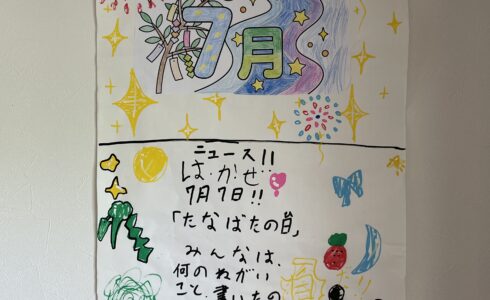 7月
ニュース!!
はかせ!!
7月7日!!
「たなばたの日」
みんなは、
何のねがい
こと書いたの